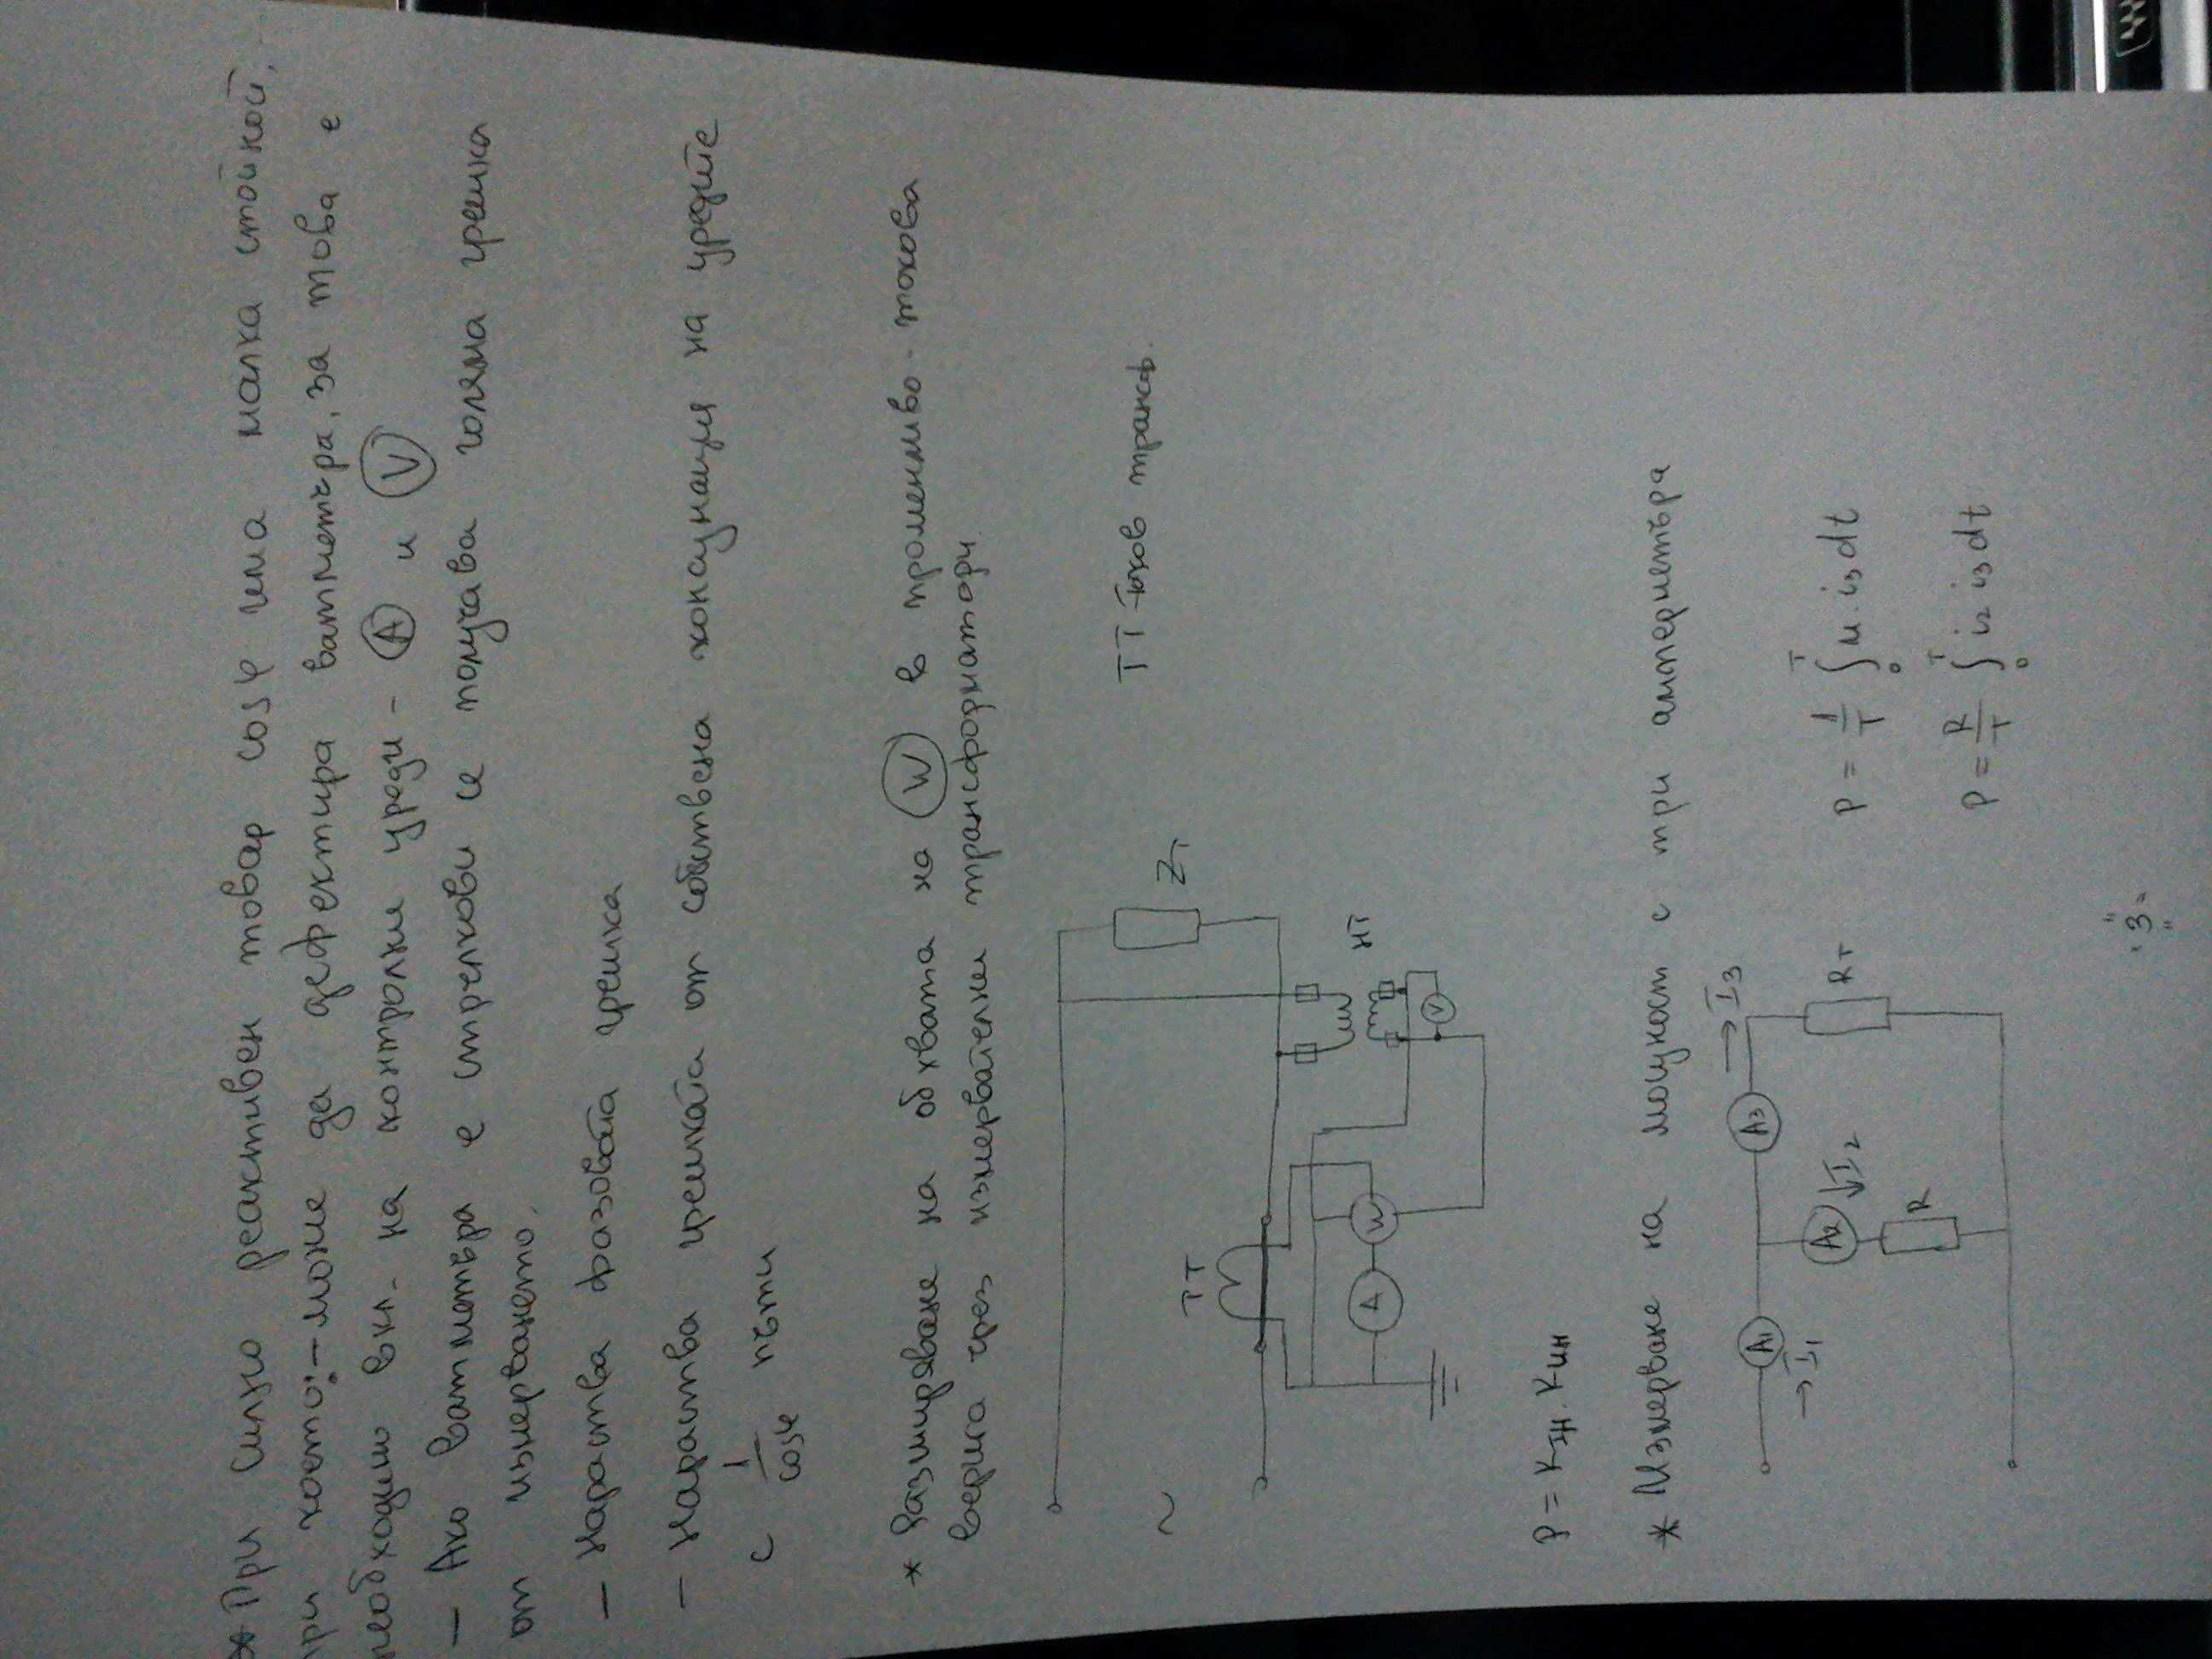 * При силно реактивен товар cosφ има малка стойкой,
при което:-може да дефектира ватметъра, за това е
необходимо вкл. на контролни уреди - (A) и (V)
- Ако ватметъра е стрелкови се получава голяма грешка
от измерването.
- Нараства фазовата грешка
- Нараства грешката от собствена консумация на уредите
с 1/cosφ пъти
* Разширяване на обхвата на (W) в променливо-токова
верига чрез измервателни трансформатори.
TT
Zт
TT-токов трансф.
~
A
W
V
HT
P = KIH . KUH
* Измерване на мощност с три амперметъра
A1
→I1
A2
↓I2
R
A3
→I3
RT
P = 1/T ∫₀ᵀ u. i3 dt
P = R/T ∫₀ᵀ i2 i3 dt
"3"